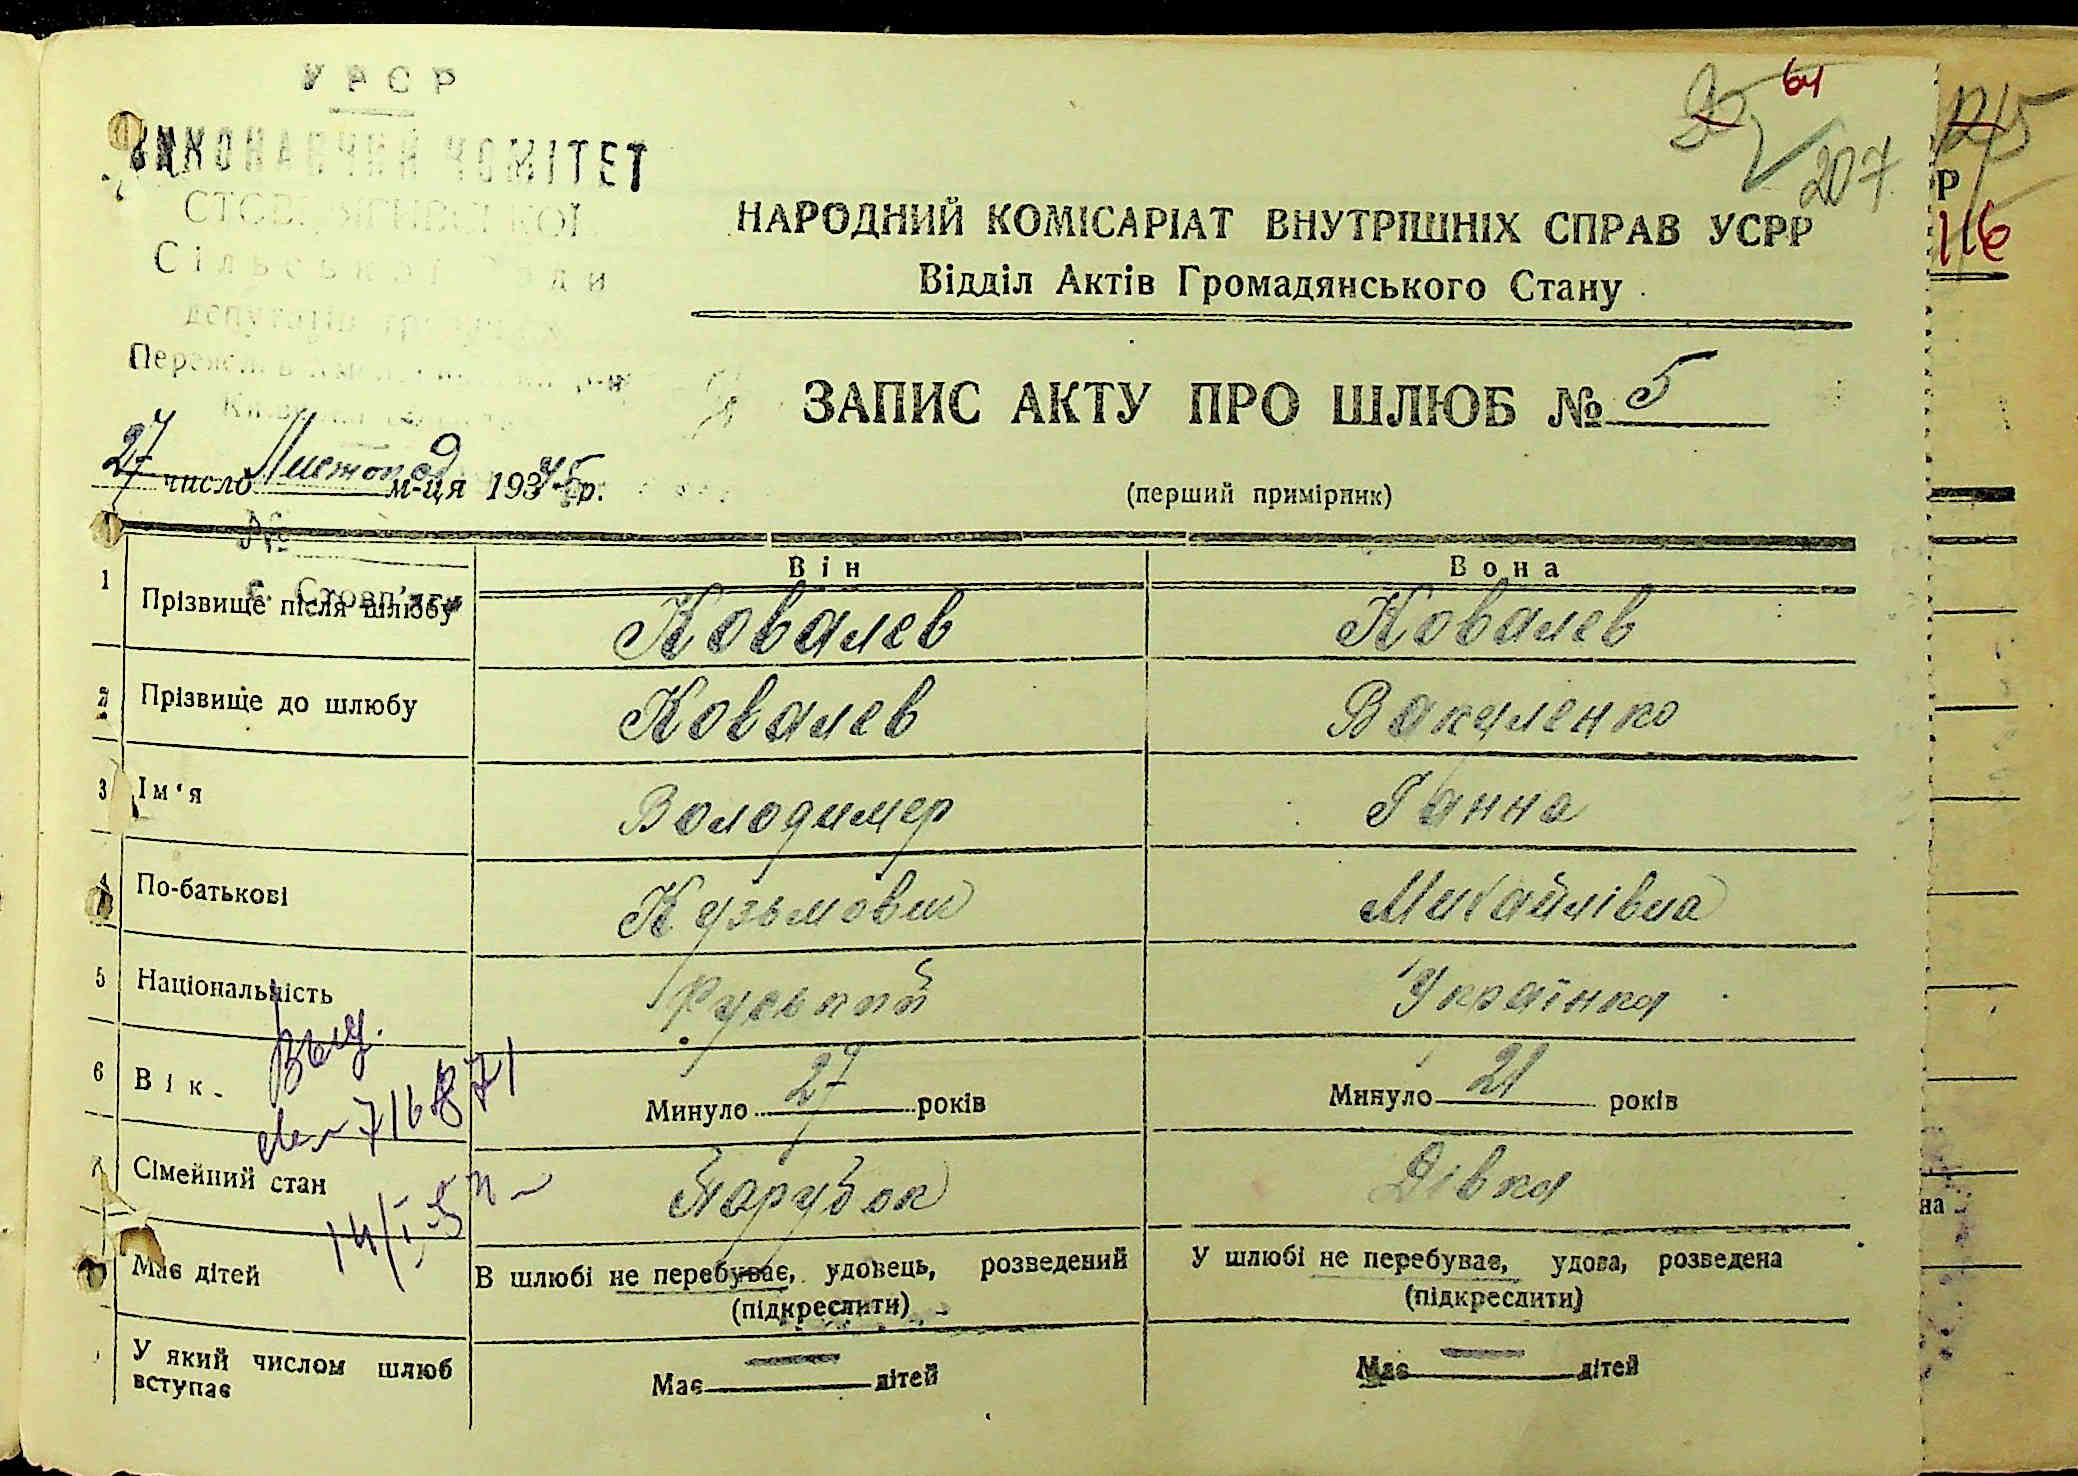 УРСР
ВИКОНАВЧИЙ КОМІТЕТ
СТОВП'ЯГІВСЬКОЇ
Сільської Ради
депутатів трудящих
64
207
116
НАРОДНИЙ КОМІСАРІАТ ВНУТРІШНІХ СПРАВ УСРР
Відділ Актів Громадянського Стану
ЗАПИС АКТУ ПРО ШЛЮБ № 5
27 число Листопад м-ця 1945 р.
(перший примірник)
№
с. Стовп'яги
Він Вона
1 Прізвище після шлюбу Ковалев Ковалев
2 Прізвище до шлюбу Ковалев Вакуленко
3 Ім'я Володимер Ганна
4 По-батькові Кузьмович Михайлівна
5 Національність Руський Українка
6 Вік. Минуло 27 років Минуло 21 років
Сімейний стан Парубок Дівка
Має дітей В шлюбі не перебуває, удовець, розведений У шлюбі не перебуває, удова, розведена
(підкреслити) (підкреслити)
У який числом шлюб вступає Має — дітей Має — дітей